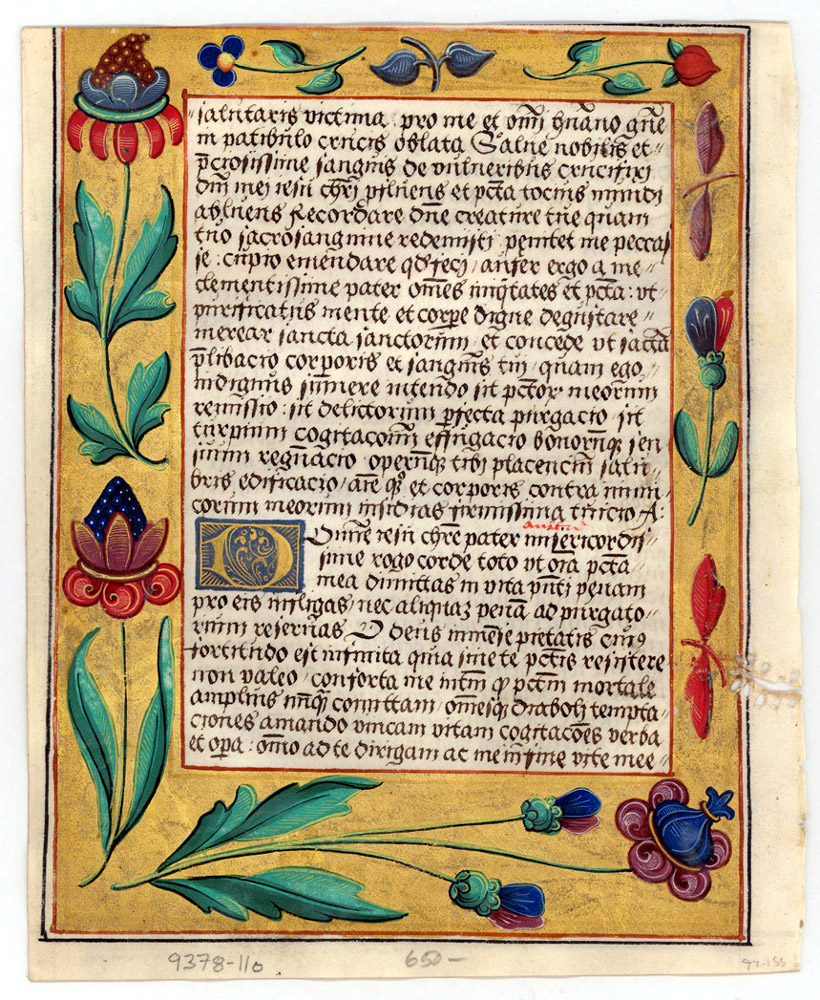 salutaris victima pro me et om̄i hūano gn̄e
in patibulo crucis oblata Salue nobilis et
p̄ciosissime sanguis de vulneribus crucifixi
dn̄i mei iesu chr̄i profluens et pctā tocius mundi
abluens Recordare dn̄e creature tue quam
tuo sacrosanguine redemisti penitet me pecca
se: cupio emendare qd feci aufer ergo a me
clementissime pater om̄es iniq̄tates et pctā: vt
purificatus mente et corpe digne degustare
merear sancta sanctorum et concede vt sancta
p̄libacio corporis et sanguis tui quam ego
indignus sumere intendo sit pctōr meorum
remissio: sit delictorum pfecta purgacio sit
turpium cogitacom̄ effugacio bonorumq̄ sen
suum regn̄acio operumq̄ tibi placencium salu
bris edificacio, aīe q̄ et corporis contra inimi
corum meorum insidias firmissima tuicio A:
Domine iesu chrē pater misericordis
sime rogo corde toto vt om̄ia pctā
mea dimittas in vita pn̄ti penam
pro eis infligas nec aliquaz penā ad purgato
rium reserues O deus immense pietatis cuiꝰ
fortitudo est infinita quia sine te pctīs resistere
non valeo conforta me intm̄ q̄ pctm̄ mortale
amplius nūq̄ comittam om̄esq̄ diaboli tempta
ciones amando vincam vitam cogitacōes verba
et opa: om̄io ad te dirigam ac me in fine vite mee
9378-110
650-
97-155